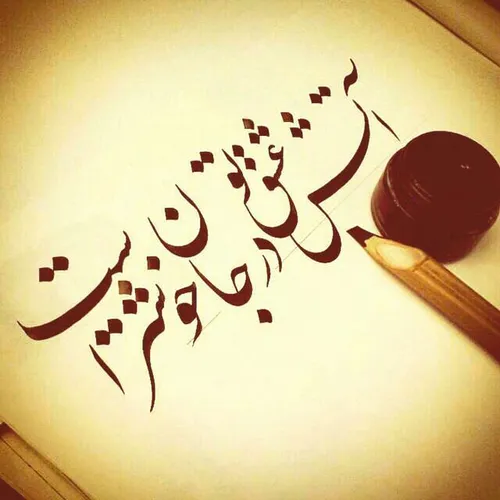 آتش عشق تو در جان خوشتر است